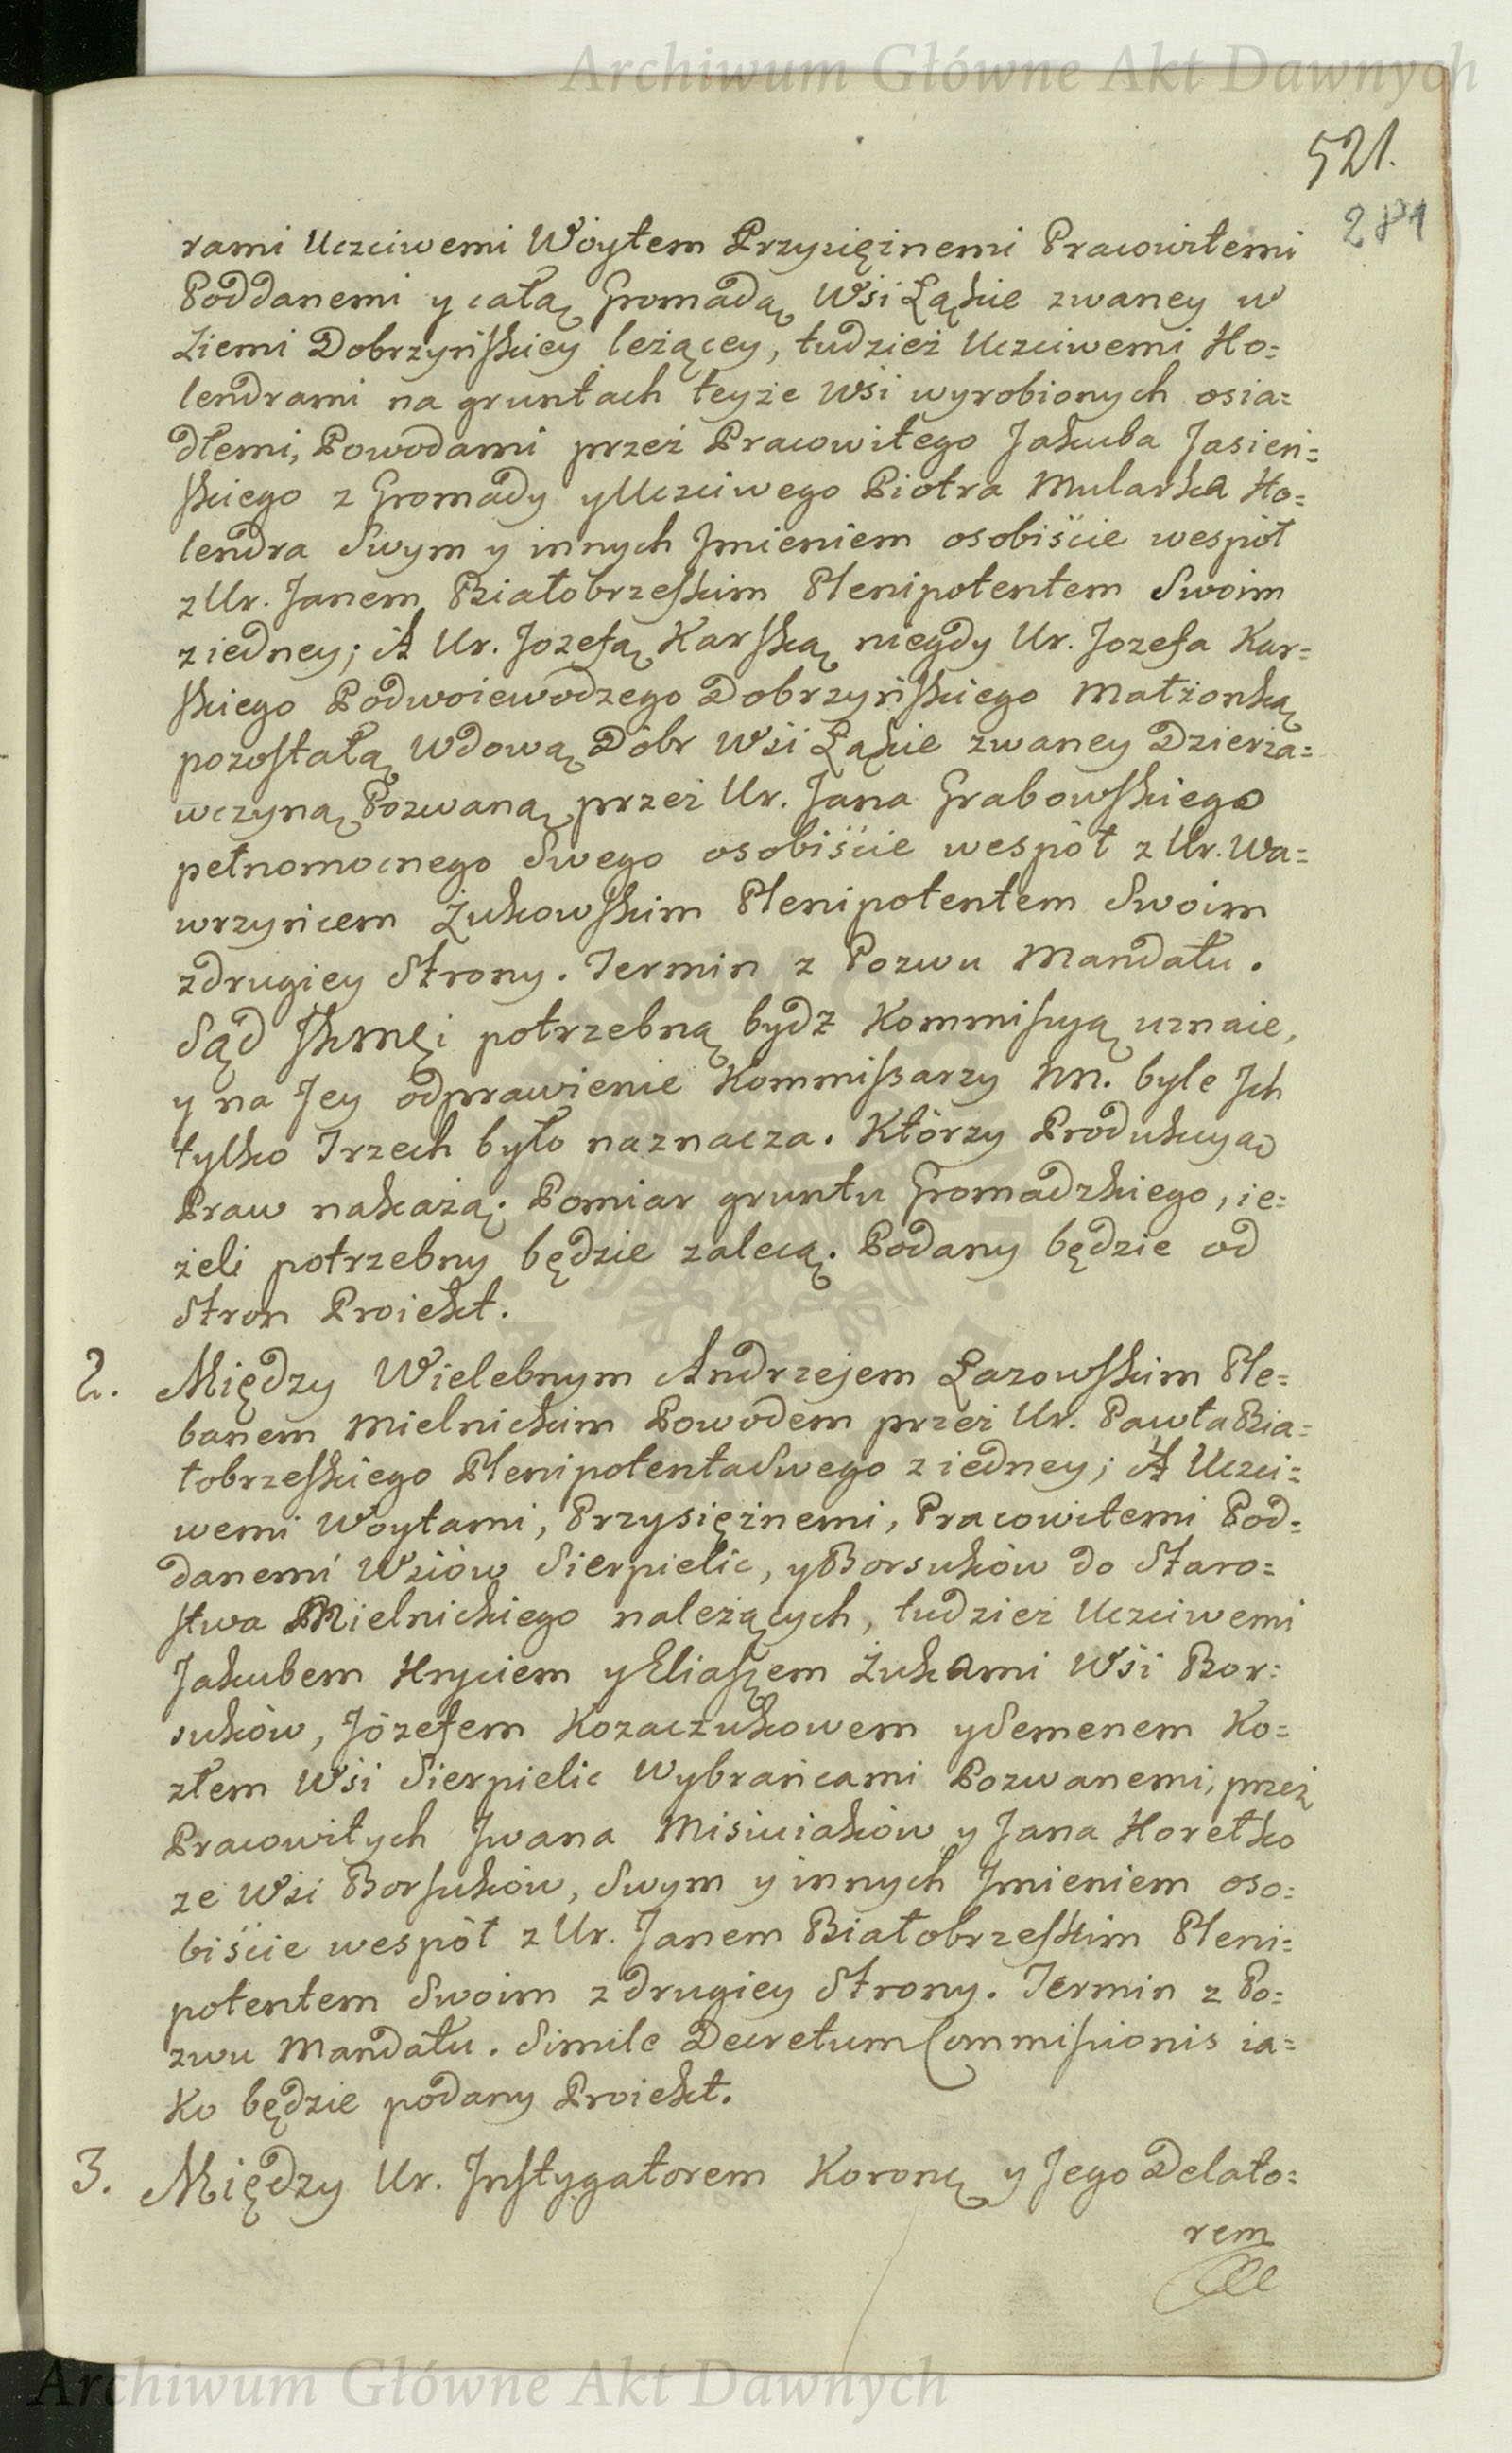 Archiwum Główne Akt Dawnych
521.
281
rami Uczciwemi Woytem Przysiężnemi Pracowitemi
Poddanemi y całą Gromadą Wsi Łąkie zwaney w
Ziemi Dobrzyńskiey leżącey, tudzież Uczciwemi Ho=
lendrami na gruntach teyże Wsi wyrobionych osia=
dłemi, Powodami przez Pracowitego Jakuba Jasień=
skiego z Gromady y Uczciwego Piotra Mularka Ho=
lendra Swym y innych Jmieniem osobiście wespół
z Ur. Janem Białobrzeskim Plenipotentem Swoim
z iedney; A Ur. Jozefą Karską niegdy Ur. Jozefa Kar=
skiego Podwoiewodzego Dobrzyńskiego Małżonką
pozostałą Wdową Dóbr Wsi Łąkie zwaney Dzierża=
wczyną Pozwaną przez Ur. Jana Grabowskiego
pełnomocnego Swego osobiście wespół z Ur. Wa=
wrzyńcem Żukowskim Plenipotentem Swoim
z drugiey Strony. Termin z Pozwu Mandatu.
Sąd potrzebną bydź Kommissyą uznaie,
y na Jey odprawienie Kommissarzy NN. byle Jch
tylko Trzech było naznacza. Którzy Produkcyą
Praw nakażą; Pomiar gruntu Gromadzkiego, ie=
żeli potrzebny będzie zalecą. Podany będzie od
Stron Proiekt.
2. Między Wielebnym Andrzejem Łazowskim Ple=
banem Mielnickim Powodem przez Ur. Pawła Bia=
łobrzeskiego Plenipotenta Swego z iedney; A Uczci=
wemi Woytami, Przysiężnemi, Pracowitemi Pod=
danemi Wsiów Sierpielic, y Borsuków do Staro=
stwa Mielnickiego należących, tudzież Uczciwemi
Jakubem Hryciem y Eliaszem Żukami Wsi Bor=
suków, Józefem Kozaczukowem y Semenem Ko=
złem Wsi Sierpielic Wybrańcami Pozwanemi, przez
Pracowitych Jwana Misiuiaków y Jana Horetko
ze Wsi Borsuków, Swym y innych Jmieniem oso=
biście wespół z Ur. Janem Białobrzeskim Pleni=
potentem Swoim z drugiey Strony. Termin z Po=
zwu Mandatu. Simile Decretum Commissionis ia=
ko będzie podany Proiekt.
3. Między Ur. Jnstygatorem Koronę y Jego Delato=
rem
Archiwum Główne Akt Dawnych